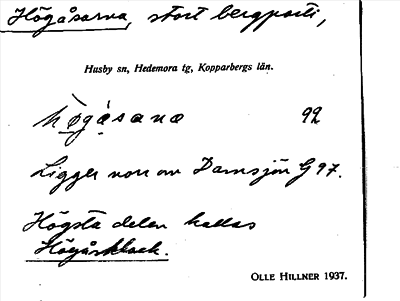 Högåsarna, stort bergparti,
Husby sn, Hedemora tg, Kopparbergs län.
hø̀gásana 92
Ligger norr om Damsjön G 97.
Högsta delen kallas
Högåsklack.
OLLE HILLNER 1937.